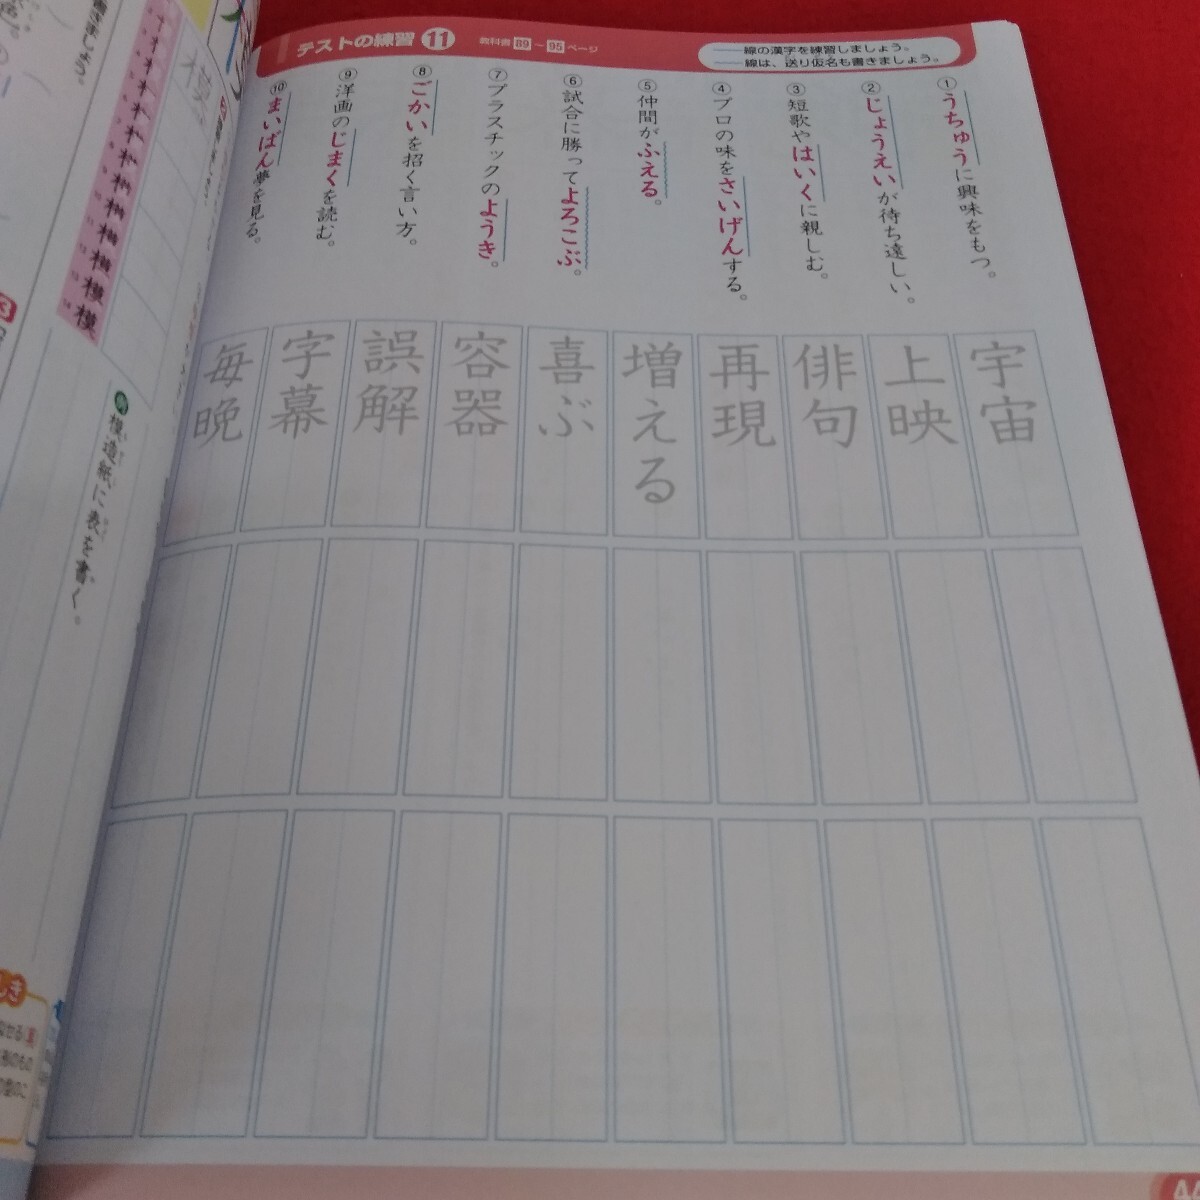 テストの練習 11 教科書 89 ～ 95 ページ
――線の漢字を練習しましょう。
――線は、送り仮名も書きましょう。
① うちゅうに興味をもつ。
② じょうえいが待ち遠しい。
③ 短歌やはいくに親しむ。
④ プロの味をさいげんする。
⑤ 仲間がふえる。
⑥ 試合に勝ってよろこぶ。
⑦ プラスチックのようき。
⑧ ごかいを招く言い方。
⑨ 洋画のじまくを読む。
⑩ まいばん夢を見る。
宇宙
上映
俳句
再現
増える
喜ぶ
容器
誤解
字幕
毎晩
模
模造紙に表を書く。
書きましょう。